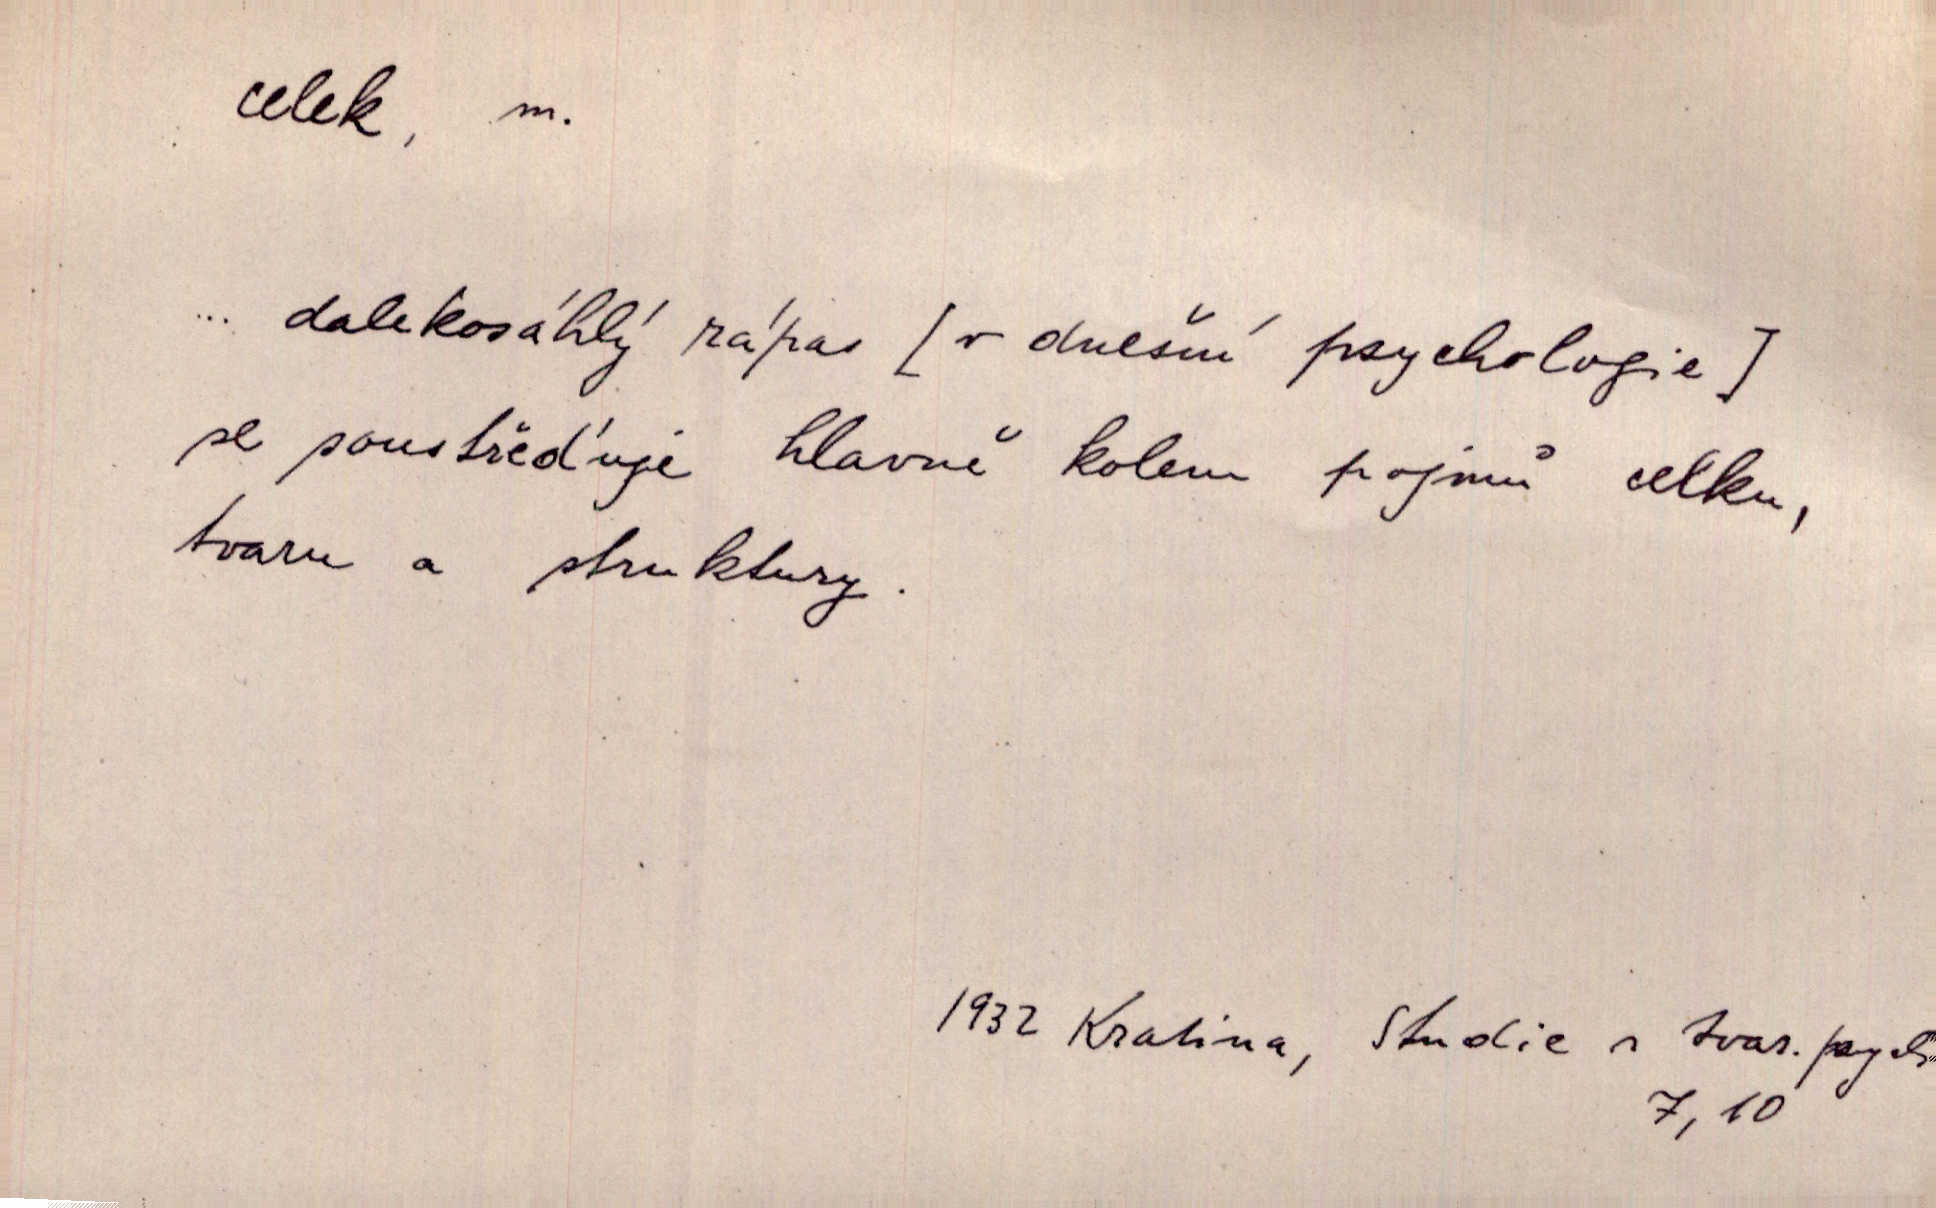 celek, m.
... dalekosáhlý zápas [v dnešní psychologie]
se soustřeďuje hlavně kolem pojmů celku,
tvaru a struktury.
1932 Kratina, Studie z tvar. psych
7, 10